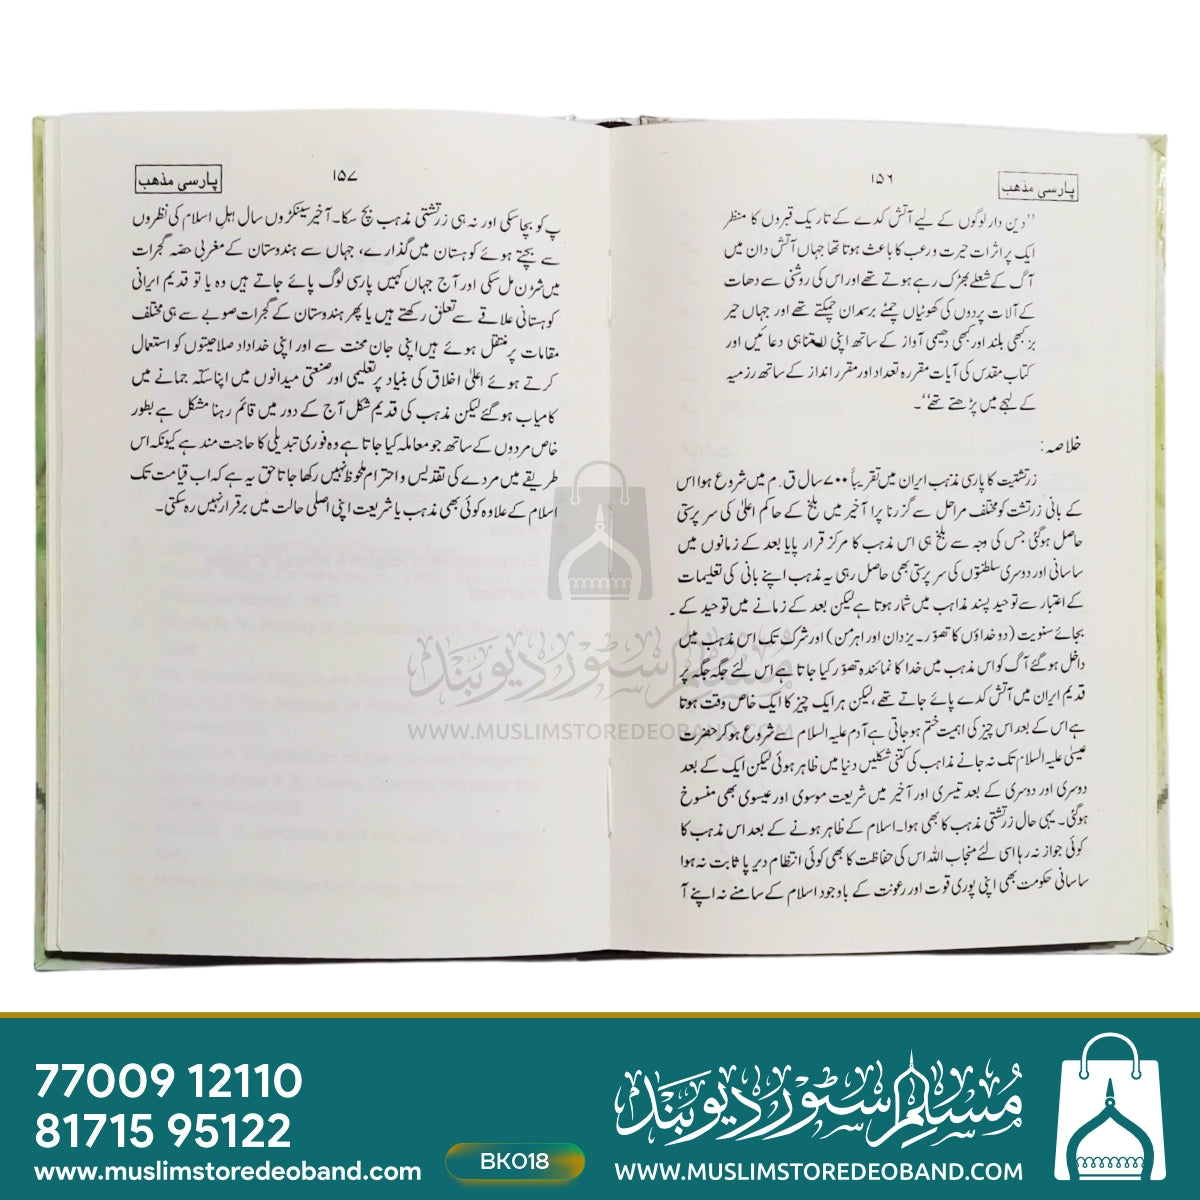 پارسی مذہب
۱۵۶
’’دین دار لوگوں کے لیے آتش کدے کے تاریک قبروں کا منظر
ایک پر اثرات حیرت ورعب کا باعث ہوتا تھا جہاں آتش دان میں
آگ کے شعلے بھڑک رہے ہوتے تھے اور اس کی روشنی سے دھات
کے آلات پردوں کی کھونٹیاں چمٹے برسمدان چمکتے تھے اور جہاں حیر
بز کبھی بلند اور کبھی دھیمی آواز کے ساتھ اپنی لامتناہی دعائیں اور
کتاب مقدس کی آیات مقررہ تعداد اور مقرر انداز کے ساتھ رزمیہ
کے لہجے میں پڑھتے تھے‘‘۔
خلاصہ:
زرتشتیت کا پارسی مذہب ایران میں تقریباً ۷۰۰ سال ق.م میں شروع ہوا اس
کے بانی زرتشت کو مختلف مراحل سے گزرنا پڑا آخیر میں بلخ کے حاکم اعلیٰ کی سرپرستی
حاصل ہوگئی جس کی وجہ سے بلخ ہی اس مذہب کا مرکز قرار پایا بعد کے زمانوں میں
ساسانی اور دوسری سلطنتوں کی سرپرستی بھی حاصل رہی یہ مذہب اپنے بانی کی تعلیمات
کے اعتبار سے توحید پسند مذاہب میں شمار ہوتا ہے لیکن بعد کے زمانے میں توحید کے
بجائے سنویت (دو خداؤں کا تصوّر۔ یزدان اور اہرمن) اور شرک تک اس مذہب میں
داخل ہوگئے آگ کو اس مذہب میں خدا کا نمائندہ تصوّر کیا جاتا ہے اس لئے جگہ جگہ پر
قدیم ایران میں آتش کدے پائے جاتے تھے، لیکن ہر ایک چیز کا ایک خاص وقت ہوتا
ہے اس کے بعد اس چیز کی اہمیت ختم ہو جاتی ہے آدم علیہ السلام سے شروع ہو کر حضرت
عیسیٰ علیہ السلام تک نہ جانے مذاہب کی کتنی شکلیں دنیا میں ظاہر ہوئی لیکن ایک کے بعد
دوسری اور دوسری کے بعد تیسری اور آخیر میں شریعت موسوی اور عیسوی بھی منسوخ
ہوگئی۔ یہی حال زرتشتی مذہب کا بھی ہوا۔ اسلام کے ظاہر ہونے کے بعد اس مذہب کا
کوئی جواز نہ رہا اسی لئے منجاب اللہ اس کی حفاظت کا بھی کوئی انتظام دیرپا ثابت نہ ہوا
ساسانی حکومت بھی اپنی پوری قوت اور رعونت کے باوجود اسلام کے سامنے نہ اپنے آ
پارسی مذہب
۱۵۷
پ کو بچا سکی اور نہ ہی زرتشتی مذہب بچ سکا۔ آخیر سینکڑوں سال اہلِ اسلام کی نظروں
سے بچتے ہوئے کوہستان میں گذارے، جہاں سے ہندوستان کے مغربی حصّہ گجرات
میں شرن مل سکی اور آج جہاں کہیں پارسی لوگ پائے جاتے ہیں وہ یا تو قدیم ایرانی
کوہستانی علاقے سے تعلق رکھتے ہیں یا پھر ہندوستان کے گجرات صوبے سے ہی مختلف
مقامات پر منتقل ہوئے ہیں اپنی جان محنت سے اور اپنی خداداد صلاحیتوں کو استعمال
کرتے ہوئے اعلیٰ اخلاق کی بنیاد پر تعلیمی اور صنعتی میدانوں میں اپنا سکّہ جمانے میں
کامیاب ہوگئے لیکن مذہب کی قدیم شکل آج کے دور میں قائم رہنا مشکل ہے بطور
خاص مردوں کے ساتھ جو معاملہ کیا جاتا ہے وہ فوری تبدیلی کا حاجت مند ہے کیونکہ اس
طریقے میں مردے کی تقدیس و احترام ملحوظ نہیں رکھا جاتا حق یہ ہے کہ اب قیامت تک
اسلام کے علاوہ کوئی بھی مذہب یا شریعت اپنی اصلی حالت میں برقرار نہیں رہ سکتی۔
مسلم سٹور دیوبند
WWW.MUSLIMSTOREDEOBAND.COM
77009 12110
81715 95122
www.muslimstoredeoband.com
BK018
مسلم سٹور دیوبند
WWW.MUSLIMSTOREDEOBAND.COM